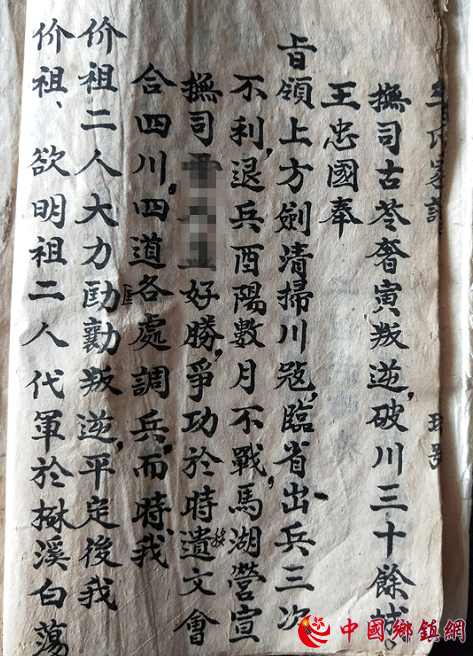 撫司古苓奢寅叛逆，破川三十餘城。
王忠國奉
旨領上方劍清掃川寇，臨省出兵三次
不利，退兵酉陽數月不戰，馬湖營宣
撫司好勝，爭功於時遺文會
合四川。四道各處調兵，而時我
价祖二人大力劻勷叛逆，平定後我
价祖、欲明祖二人代軍於溪白蕩
中國鄉鎮網